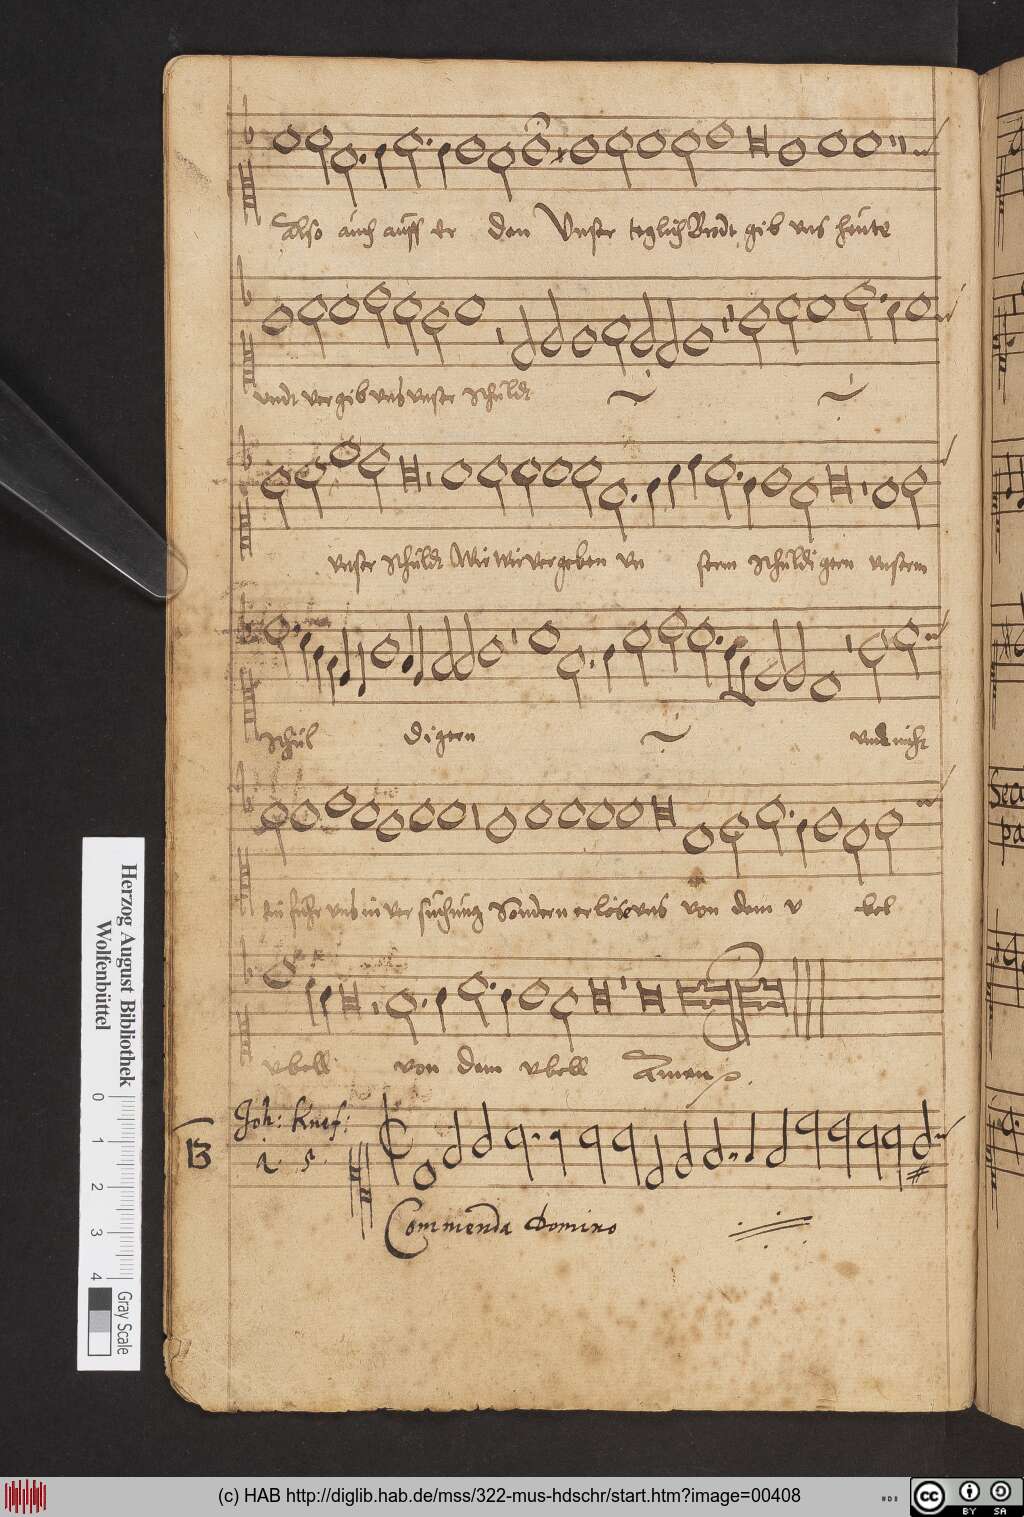 Also auch auff er den Unser teglich Brodt gib uns heute
undt vergib uns unser schuldt
unser schuldt Wie wir vergeben un sern schuldi gern unsern
schul digern undt nicht
ein fuhr uns in ver suchung Sondern erlöse uns von dem v bel
vbell von dem vbell Amen
Joh: Knef:
a 5
13
Commenda Domino
Sec
pa
Herzog August Bibliothek
Wolfenbüttel
0 1 2 3 4
Gray Scale
(c) HAB http://diglib.hab.de/mss/322-mus-hdschr/start.htm?image=00408
cc BY SA